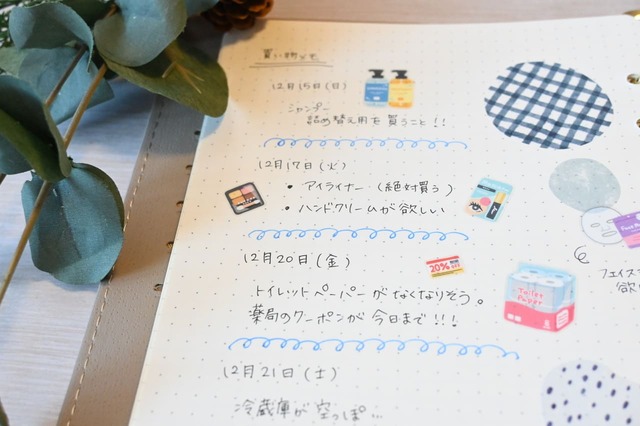 買い物メモ
12月15日(日)
シャンプー
詰め替え用を買うこと!!
12月17日(火)
• アイライナー (絶対買う)
• ハンドクリームが欲しい
12月20日(金)
20%
トイレットペーパーがなくなりそう。
薬局のクーポンが今日まで!!!
Toilet
Paper
フェイス
欲
12月21日(土)
冷蔵庫が空っぽ…